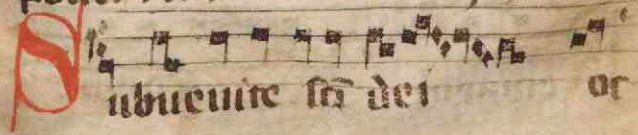 Subuenite sc̄i dei oc